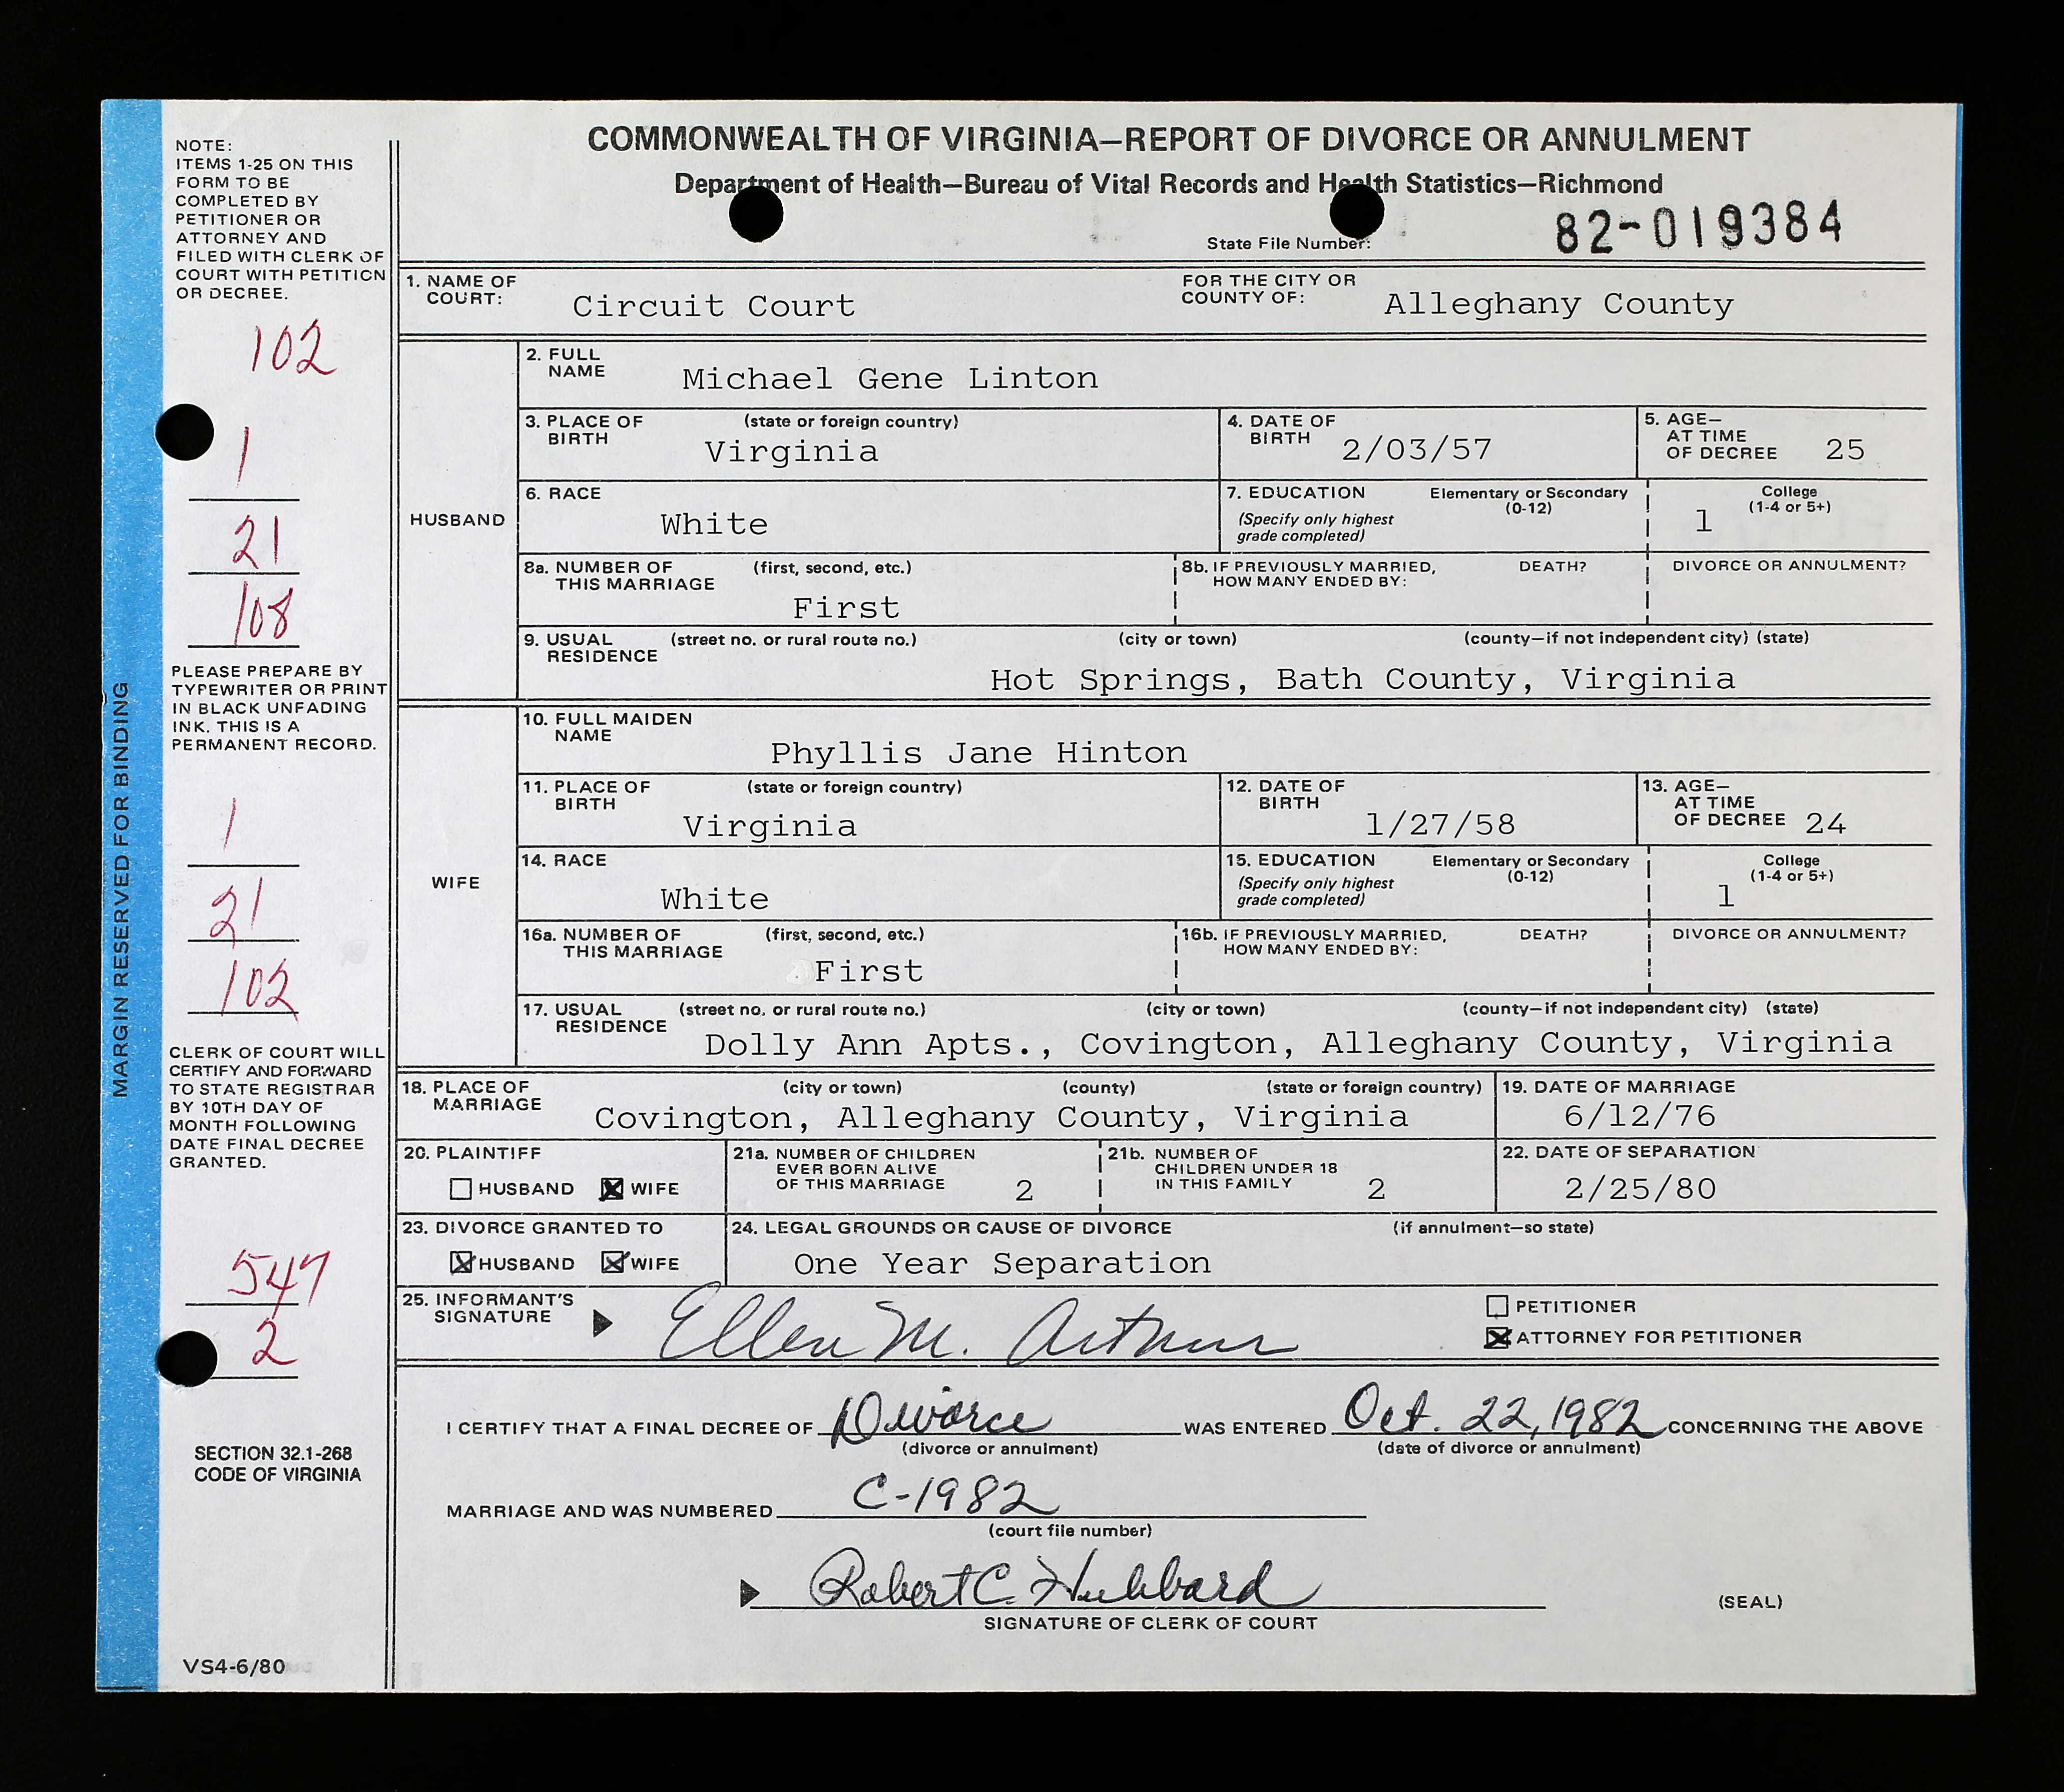 COMMONWEALTH OF VIRGINIA—REPORT OF DIVORCE OR ANNULMENT
Department of Health—Bureau of Vital Records and Health Statistics—Richmond
State File Number: 82-019384
NOTE:
ITEMS 1-25 ON THIS
FORM TO BE
COMPLETED BY
PETITIONER OR
ATTORNEY AND
FILED WITH CLERK OF
COURT WITH PETITION
OR DECREE.
102
1
21
108
PLEASE PREPARE BY
TYPEWRITER OR PRINT
IN BLACK UNFADING
INK. THIS IS A
PERMANENT RECORD.
1
21
102
CLERK OF COURT WILL
CERTIFY AND FORWARD
TO STATE REGISTRAR
BY 10TH DAY OF
MONTH FOLLOWING
DATE FINAL DECREE
GRANTED.
547
2
SECTION 32.1-268
CODE OF VIRGINIA
VS4-6/80
MARGIN RESERVED FOR BINDING
1. NAME OF COURT: Circuit Court FOR THE CITY OR COUNTY OF: Alleghany County
HUSBAND
2. FULL NAME Michael Gene Linton
3. PLACE OF BIRTH (state or foreign country) Virginia 4. DATE OF BIRTH 2/03/57 5. AGE— AT TIME OF DECREE 25
6. RACE White 7. EDUCATION (Specify only highest grade completed) Elementary or Secondary (0-12) College (1-4 or 5+) 1
8a. NUMBER OF THIS MARRIAGE (first, second, etc.) First 8b. IF PREVIOUSLY MARRIED, HOW MANY ENDED BY: DEATH? DIVORCE OR ANNULMENT?
9. USUAL RESIDENCE (street no. or rural route no.) (city or town) (county—if not independent city) (state)
Hot Springs, Bath County, Virginia
WIFE
10. FULL MAIDEN NAME Phyllis Jane Hinton
11. PLACE OF BIRTH (state or foreign country) Virginia 12. DATE OF BIRTH 1/27/58 13. AGE— AT TIME OF DECREE 24
14. RACE White 15. EDUCATION (Specify only highest grade completed) Elementary or Secondary (0-12) College (1-4 or 5+) 1
16a. NUMBER OF THIS MARRIAGE (first, second, etc.) First 16b. IF PREVIOUSLY MARRIED, HOW MANY ENDED BY: DEATH? DIVORCE OR ANNULMENT?
17. USUAL RESIDENCE (street no. or rural route no.) (city or town) (county—if not independent city) (state)
Dolly Ann Apts., Covington, Alleghany County, Virginia
18. PLACE OF MARRIAGE (city or town) (county) (state or foreign country) Covington, Alleghany County, Virginia 19. DATE OF MARRIAGE 6/12/76
20. PLAINTIFF HUSBAND WIFE 21a. NUMBER OF CHILDREN EVER BORN ALIVE OF THIS MARRIAGE 2 21b. NUMBER OF CHILDREN UNDER 18 IN THIS FAMILY 2 22. DATE OF SEPARATION 2/25/80
23. DIVORCE GRANTED TO HUSBAND WIFE 24. LEGAL GROUNDS OR CAUSE OF DIVORCE (if annulment—so state) One Year Separation
25. INFORMANT'S SIGNATURE Ellen M. Arthur PETITIONER
ATTORNEY FOR PETITIONER
I CERTIFY THAT A FINAL DECREE OF Divorce WAS ENTERED Oct. 22, 1982 CONCERNING THE ABOVE
(divorce or annulment) (date of divorce or annulment)
MARRIAGE AND WAS NUMBERED C-1982
(court file number)
Robert C. Hubbard
SIGNATURE OF CLERK OF COURT (SEAL)